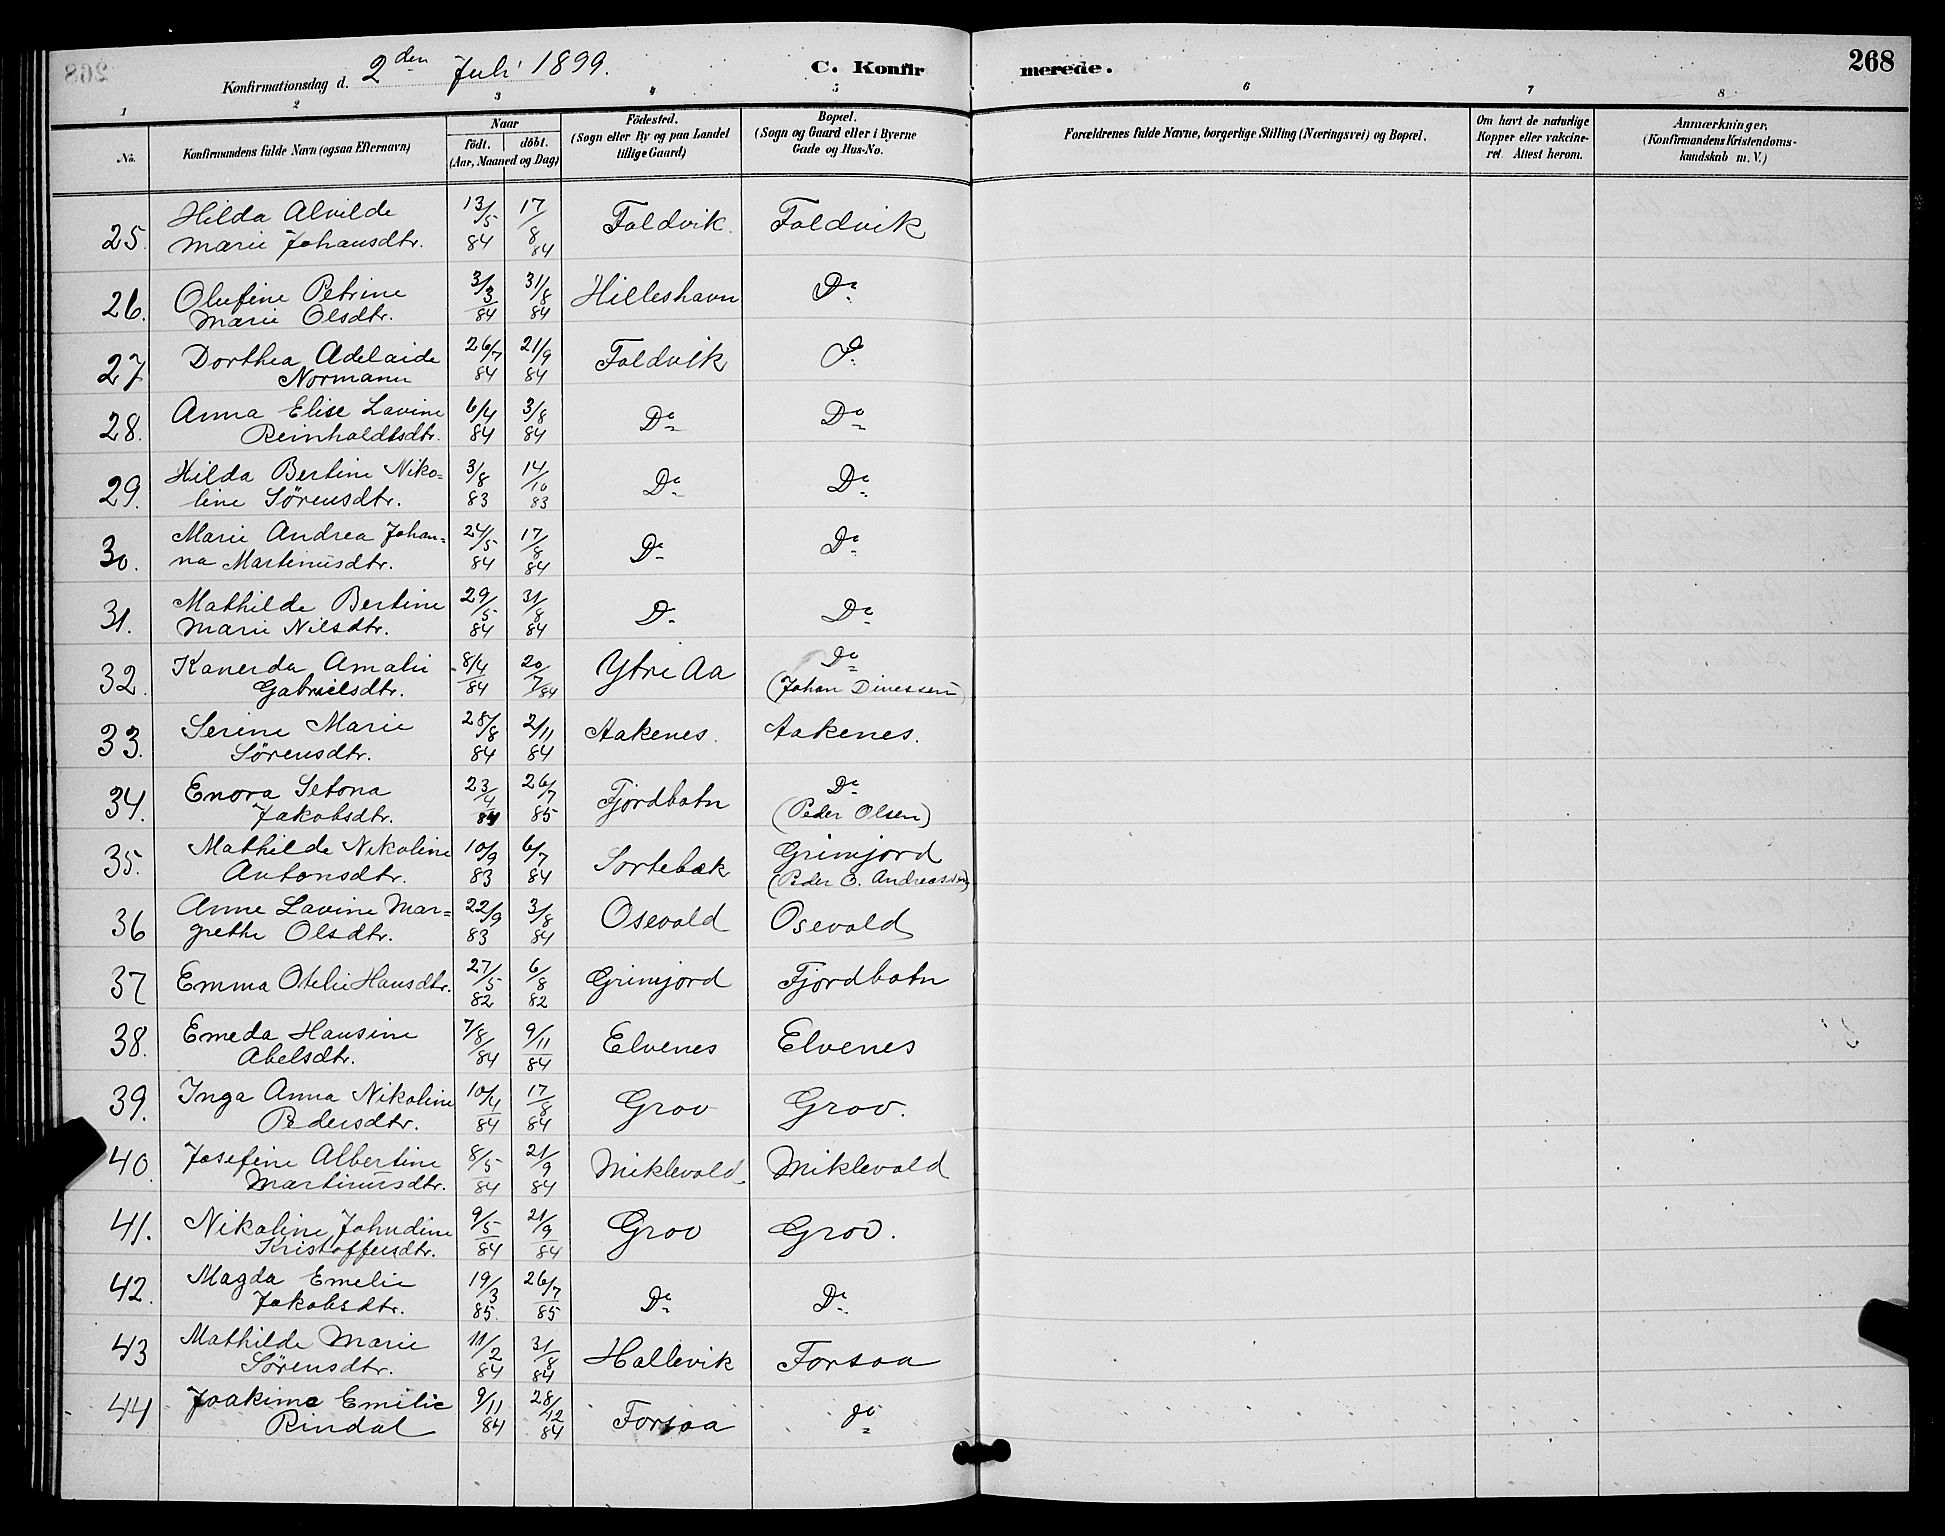 268
Konfirmationsdag d. 2den Juli 1899.
C. Konfirmerede.
1 2 3 4 5 6 7 8
No.
Konfirmandens fulde Navn (ogsaa Efternavn)
Naar
födt. döbt.
(Aar, Maaned og Dag)
Födested.
(Sogn eller By og paa Landet
tillige Gaard)
Bopæl.
(Sogn og Gaard eller i Byerne
Gade og Hus-No.
Forældrenes fulde Navne, borgerlige Stilling (Næringsvei) og Bopæl.
Om havt de naturlige
Kopper eller vakcine-
ret. Attest herom.
Anmærkninger,
(Konfirmandens Kristendoms-
kundskab m. V.)
25. Hilda Alvilde Marie Johansdtr. 13/5 84 17/8 84 Foldvik. Foldvik
26. Olufine Petrine Marie Olsdtr. 3/3 84 31/8 84 Hilleshavn Do
27 Dorthea Adelaide Normann 26/7 84 21/9 84 Foldvik Do
28. Anna Elise Lavine Reinholdtsdtr. 6/4 84 3/8 84 Do Do
29. Hilda Bertine Niko= line Sørensdtr. 3/8 83 14/10 83 Do Do
30. Marie Andrea Johan= na Martinusdtr. 24/5 84 17/8 84 Do Do
31. Mathilde Bertine Marie Nilsdtr. 29/5 84 31/8 84 Do Do
32. Kanerda Amalie Gabrielsdtr. 8/4 84 20/7 84 Ytre Aa Do (Johan Dinessen)
33. Serine Marie Sørensdtr. 28/8 84 2/11 84 Aakenes. Aakenes.
34. Enora Setona Jakobsdtr. 23/4 84 26/7 85 Fjordbotn Do (Peder Olsen)
35. Mathilde Nikoline Antonsdtr. 10/9 83 6/7 84 Sortebæk Grimjord (Peder O. Andreassen)
36 Anne Lavine Mar= grethe Olsdtr. 22/9 83 3/8 84 Osevold Osevold
37 Emma Otelie Hansdtr. 27/5 82 6/8 82 Grimjord Fjordbotn
38. Emeda Hansine Abelsdtr. 7/8 84 9/11 84 Elvenes Elvenes
39. Inga Anna Nikoline Pedersdtr. 10/4 84 17/8 84 Grov Grov.
40. Josefine Albertine Martinusdtr. 8/5 84 21/9 84 Miklevold Miklevold
41. Nikoline Johndine Kristoffersdtr. 9/5 84 21/9 84 Grov Grov.
42. Magda Emelie Jakobsdtr. 19/3 85. 26/7 85 Do Do
43 Mathilde Marie Sørensdtr. 11/2 84 31/8 84 Hallevik Forsaa
44 Joakime Emilie Rindal 9/11 84 28/12 84 Forsaa do